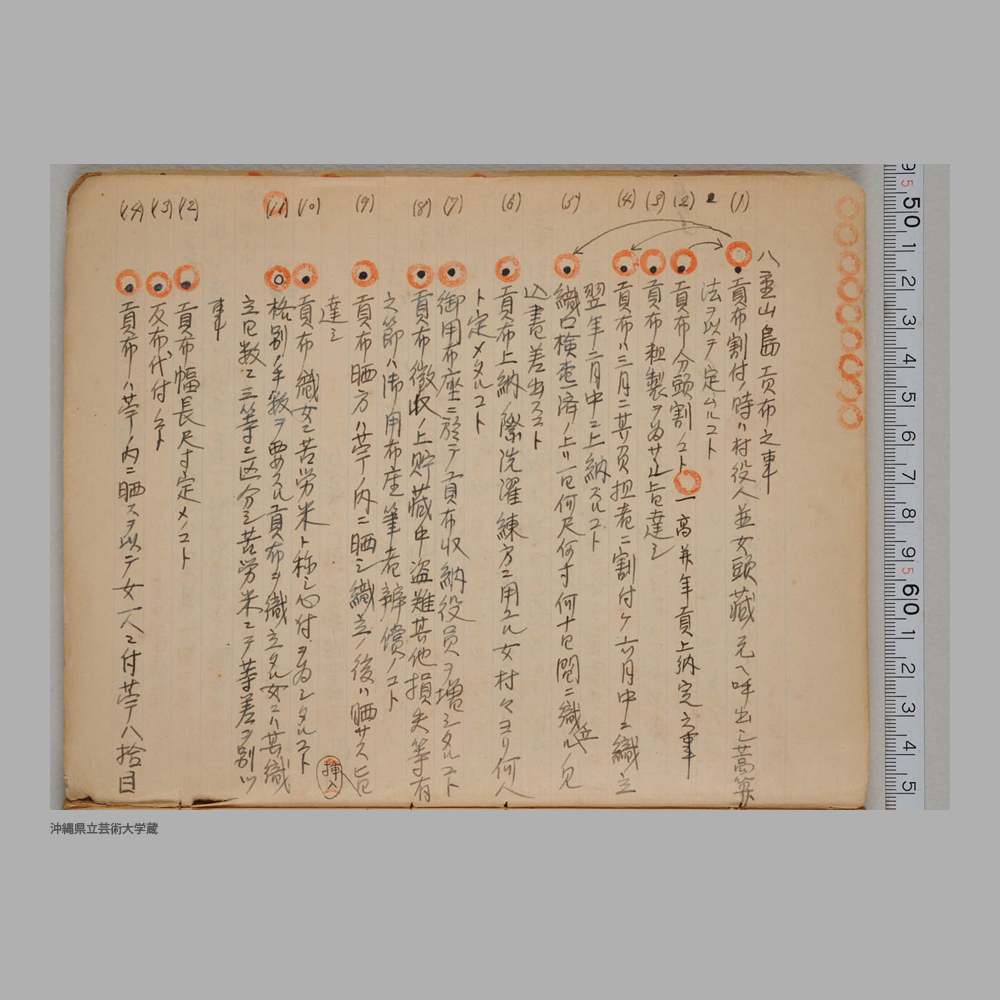 八重山島貢布之事
(1) 貢布割付ノ時ハ村役人並女頭蔵元ヘ呼出シ藁算
法ヲ以テ定ムルコト
(2) 貢布分頭割ノコト 一高并年貢上納定之事
(3) 貢布粗製ヲ為サヽル旨達シ
(4) 貢布ハ三月ニ其負担者ニ割付ケ六月中ニ織立
翌年二月中ニ上納スルコト
(5) 織口検査済ノ上ハ一日何尺何寸何十日間ニ織立ル見
込書差出スコト
(6) 貢布上納ノ際洗濯練方ニ用ユル女村々ヨリ何人
ト定メタルコト
(7) 御用布座ニ於テ貢布収納役員ヲ増シタルコト
(8) 貢布徴収ノ上貯蔵中盗難其他損失等有
之節ハ御用布座筆者辨償ノコト
(9) 貢布晒方ハ苧ノ内ニ晒シ織立ノ後ハ晒サス旨
達シ
挿入
(10) 貢布織女ニ苦労米ト称シ心付ヲ為シタルコト
(11) 格別ノ手数ヲ要スル貢布ヲ織立タル女ニハ其織
立日数ニ三等ニ区分シ苦労米ニテ等差ヲ別ツ
事
(12) 貢布幅長尺寸定メノコト
(13) 反布代付ノコト
(14) 貢布ハ苧ノ内ニ晒スヲ以テ女一人ニ付苧八拾目
沖縄県立芸術大学蔵